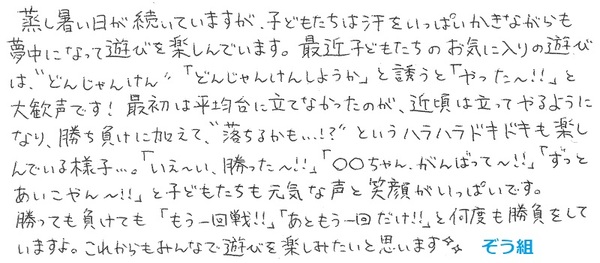 蒸し暑い日が続いていますが、子どもたちは汗をいっぱいかきながらも
夢中になって遊びを楽しんでいます。最近子どもたちのお気に入りの遊び
は、“どんじゃんけん”「どんじゃんけんしようか」と誘うと「やった〜!!」と
大歓声です！最初は平均台に立てなかったのが、近頃は立ってやるように
なり、勝ち負けに加えて、“落ちるかも…!?”というハラハラドキドキも楽し
んでいる様子…。「いえ〜い、勝った〜!!」「〇〇ちゃん、がんばって〜!!」「ずっと
あいこやん〜!!」と子どもたちも元気な声と笑顔がいっぱいです。
勝っても負けても「もう一回戦!!」「あともう一回だけ!!」と何度も勝負をして
いますよ。これからもみんなで遊びを楽しみたいと思います☆ ぞう組